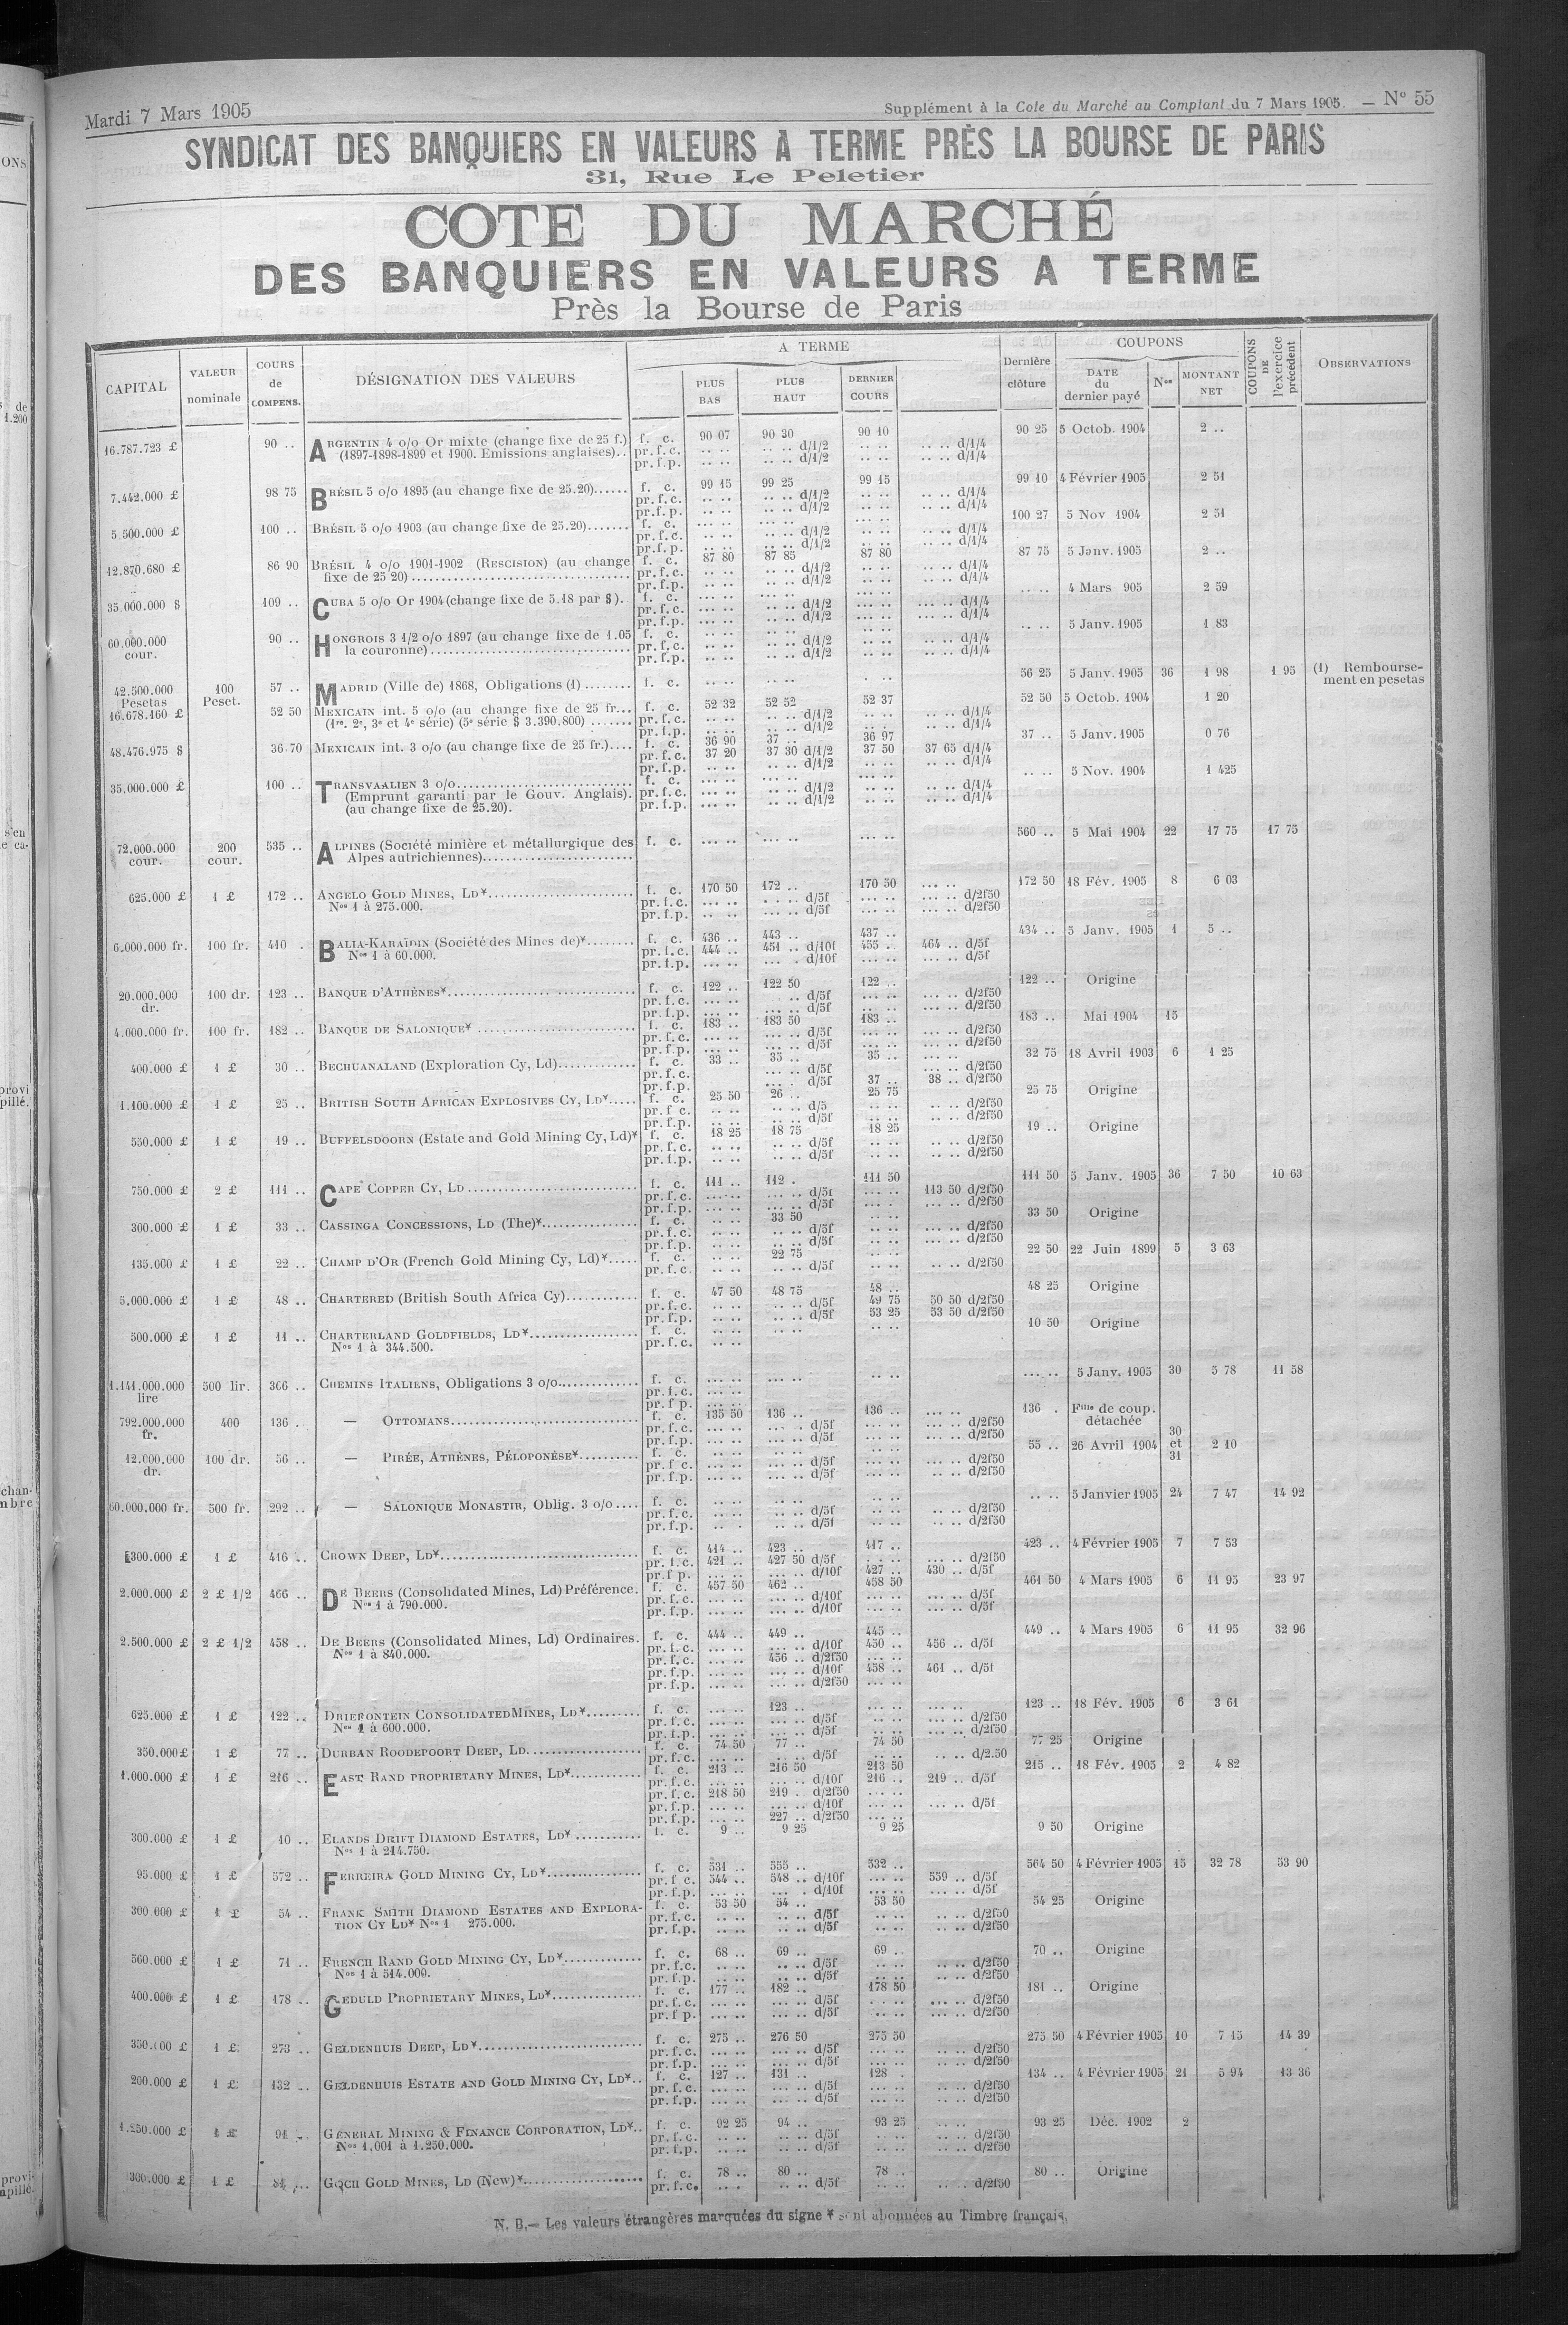 Mardi 7 Mars 1905
Supplément à la Cote du Marché au Comptant du 7 Mars 1905. — N° 55
SYNDICAT DES BANQUIERS EN VALEURS A TERME PRÈS LA BOURSE DE PARIS
31, Rue Le Peletier
COTE DU MARCHÉ
DES BANQUIERS EN VALEURS A TERME
Près la Bourse de Paris
CAPITAL VALEUR nominale COURS de COMPENS. DÉSIGNATION DES VALEURS A TERME PLUS BAS PLUS HAUT DERNIER COURS Dernière clôture COUPONS DATE du dernier payé Nos MONTANT NET COUPONS DE l'exercice précédent OBSERVATIONS
16.787.723 £ 90 .. ARGENTIN 4 o/o Or mixte (change fixe de 25 f.) f. c. 90 07 90 30 90 10 90 25 5 Octob. 1904 2 ..
(1897-1898-1899 et 1900. Emissions anglaises).. pr. f. c. .. .. .. .. d/1/2 .. .. .. .. d/1/4
pr. f. p. .. .. .. .. d/1/2 .. .. .. .. d/1/4
7.442.000 £ 98 75 BRÉSIL 5 o/o 1895 (au change fixe de 25.20)...... f. c. 99 15 99 25 99 15 99 10 4 Février 1905 2 51
pr. f. c. .. .. .. .. d/1/2 .. .. .. .. d/1/4
pr. f. p. .. .. .. .. d/1/2 .. .. .. .. d/1/4
5.500.000 £ 100 .. BRÉSIL 5 o/o 1903 (au change fixe de 25.20)....... f. c. ... .. ... .. ... .. 100 27 5 Nov 1904 2 51
pr. f. c. .. .. .. .. d/1/2 .. .. .. .. d/1/4
pr. f. p. .. .. .. .. d/1/2 .. .. .. .. d/1/4
12.870.680 £ 86 90 BRÉSIL 4 o/o 1901-1902 (RESCISION) (au change f. c. 87 80 87 85 87 80 87 75 5 Janv. 1905 2 ..
fixe de 25 20) .................... pr. f. c. .. .. .. .. d/1/2 .. .. .. .. d/1/4
pr. f. p. .. .. .. .. d/1/2 .. .. .. .. d/1/4
35.000.000 $ 109 .. CUBA 5 o/o Or 1904 (change fixe de 5.18 par $).. f. c. ... .. ... .. ... .. .. .. 4 Mars 905 2 59
pr. f. c. ... .. ... .. d/1/2 ... .. ... .. d/1/4
pr. f. p. ... .. ... .. d/1/2 ... .. ... .. d/1/4
60.000.000 cour. 90 .. HONGROIS 3 1/2 o/o 1897 (au change fixe de 1.05 f. c. .. .. .. .. .. .. .. .. 5 Janv. 1905 1 83
la couronne).................... pr. f. c. .. .. .. .. d/1/2 .. .. .. .. d/1/4
pr. f. p. .. .. .. .. d/1/2 .. .. .. .. d/1/4
42.500.000 Pesetas 100 Peset. 57 .. MADRID (Ville de) 1868, Obligations (1) ........ f. c. .. .. .. .. . .. 56 25 5 Janv. 1905 36 1 98 1 95 (1) Rembourse-
ment en pesetas
16.678.160 £ 52 50 MEXICAIN int. 5 o/o (au change fixe de 25 fr... f. c. 52 32 52 52 52 37 52 50 5 Octob. 1904 1 20
(1re. 2e, 3e et 4e série) (5e série $ 3.390.800) ....... pr. f. c. .. .. .. .. d/1/2 .. .. .. .. d/1/4
pr. f. p. .. .. .. .. d/1/2 .. .. .. .. d/1/4
48.476.975 $ 36.70 MEXICAIN int. 3 o/o (au change fixe de 25 fr.).... f. c. 36 90 37 .. 36 97 37 .. 5 Janv. 1905 0 76
pr. f. c. 37 20 37 30 d/1/2 37 50 37 65 d/1/4
pr. f. p. .. .. .. .. d/1/2 .. .. .. .. d/1/4
35.000.000 £ 100 .. TRANSVAALIEN 3 o/o.................... f. c. ... .. ... .. ... .. .. .. 5 Nov. 1904 1 425
(Emprunt garanti par le Gouv. Anglais). pr. f. c. ... .. ... .. d/1/2 .. .. .. .. d/1/4
(au change fixe de 25.20). pr. f. p. ... .. ... .. d/1/2 .. .. .. .. d/1/4
72.000.000 cour. 200 cour. 535 .. ALPINES (Société minière et métallurgique des f. c. ... .. ... .. ... .. 560 .. 5 Mai 1904 22 17 75 17 75
Alpes autrichiennes)....................
625.000 £ 1 £ 172 .. ANGELO GOLD MINES, LD*.................... f. c. 170 50 172 .. 170 50 ... .. 172 50 18 Fév. 1905 8 6 03
Nos 1 à 275.000. pr. f. c. ... .. d/5f ... .. d/2f50
pr. f. p. .. .. ... .. d/5f ... .. ... .. d/2f50
6.000.000 fr. 100 fr. 410 . BALIA-KARAÏDIN (Société des Mines de)*........ f. c. 436 .. 443 .. 437 .. 434 .. 5 Janv. 1905 1 5 ..
Nos 1 à 60.000. pr. f. c. 444 .. 451 .. d/10f 455 . 464 .. d/5f
pr. f. p. ... .. d/10f ... .. ... .. d/5f
20.000.000 dr. 100 dr. 123 .. BANQUE D'ATHÈNES*.................... f. c. 122 .. 122 50 122 .. 122 .. Origine
pr. f. c. ... .. .. d/5f ... .. ... .. d/2f50
pr. f. p. ... .. ... .. d/5f .. .. ... .. d/2f50
4.000.000 fr. 100 fr. 182 .. BANQUE DE SALONIQUE* .................... f. c. 183 .. 183 50 183 .. 183 .. Mai 1904 15
pr. f. c. ... .. ... .. d/5f ... .. ... .. d/2f50
pr. f. p. ... .. ... .. d/5f ... .. ... .. d/2f50
400.000 £ 1 £ 30 .. BECHUANALAND (Exploration Cy, Ld)............ f. c. 33 .. 35 .. 35 .. ... .. 32 75 18 Avril 1903 6 1 25
pr. f. c. ... .. d/5f ... .. d/2f50
pr. f. p. ... . d/5f 37 .. 38 .. d/2f50
1.100.000 £ 1 £ 25 .. BRITISH SOUTH AFRICAN EXPLOSIVES CY, LD*..... f. c. 25 50 26 .. 25 75 25 75 Origine
pr. f c. .. .. .. .. d/5 .. .. .. .. d/2f50
pr. f. p. .. .. .. .. d/5f .. .. .. .. d/2f50
550.000 £ 1 £ 19 .. BUFFELSDOORN (Estate and Gold Mining Cy, Ld)* f. c. 18 25 18 75 18 25 19 .. Origine
pr. f. c. .. .. .. .. d/5f .. .. .. .. d/2f50
pr. f. p. .. .. .. .. d/5f .. .. .. .. d/2f50
750.000 £ 2 £ 111 .. CAPE COPPER CY, LD .................... f. c. 111 .. 112 . 111 50 111 50 5 Janv. 1905 36 7 50 10 63
pr. f. c. ... .. ... .. d/5f ... .. 113 50 d/2f50
pr. f. p. ... .. ... .. d/5f ... . ... .. d/2f50
300.000 £ 1 £ 33 .. CASSINGA CONCESSIONS, LD (The)*................ f. c. .. .. 33 50 .. .. 33 50 Origine
pr. f. c. .. .. .. .. d/5f ... .. d/2f50
pr. f. p. .. .. .. .. d/5f .. .. ... .. d/2f50
135.000 £ 1 £ 22 .. CHAMP D'OR (French Gold Mining Cy, Ld)*..... f. c. .. .. 22 75 .. .. 22 50 22 Juin 1899 5 3 63
pr. f. c. .. .. .. .. d/5f .. .. .. .. d/2f50
5.000.000 £ 1 £ 48 .. CHARTERED (British South Africa Cy)............ f. c. 47 50 48 75 48 .. 48 25 Origine
pr. f. c. .. .. .. .. d/5f 49 75 50 50 d/2f50
pr. f. p. .. .. .. .. d/5f 53 25 53 50 d/2f50
500.000 £ 1 £ 11 .. CHARTERLAND GOLDFIELDS, LD*.................. f. c. .. .. .. .. .. .. 10 50 Origine
Nos 1 à 344.500. pr. f. c. .. ..
1.141.000.000 lire 500 lir. 366 .. CHEMINS ITALIENS, Obligations 3 o/o.............. f. c. ... .. ... .. .. .. ... .. 5 Janv. 1905 30 5 78 11 58
pr. f. c. ... ..
pr. f p. ... ..
792.000.000 fr. 400 136 .. — OTTOMANS.................... f. c. 135 50 136 .. 136 .. ... .. 136 . Flle de coup.
détachée
pr. f. c. ... .. ... . d/5f ... .. ... .. d/2f50
pr. f. p. ... .. ... .. d/5f ... .. ... .. d/2f50
12.000.000 dr. 100 dr. 56 .. — PIRÉE, ATHÈNES, PÉLOPONÈSE*.......... f. c. .. .. .. .. .. .. 55 .. 26 Avril 1904 30 et 31 2 10
pr. f c. ... .. ... .. d/5f ... .. ... .. d/2f50
pr. f. p. ... .. ... .. d/5f ... .. .. .. d/2f50
60.000.000 fr. 500 fr. 292 .. — SALONIQUE MONASTIR, Oblig. 3 o/o.... f. c. .. .. .. .. .. .. .. .. 5 Janvier 1905 24 7 47 14 92
pr. f. c. .. .. .. .. d/5f .. .. .. .. d/2f50
pr. f. p. .. . .. .. d/5f .. .. .. .. d/2f50
300.000 £ 1 £ 416 .. CROWN DEEP, LD*.................... f. c. 414 .. 423 .. 417 .. 423 .. 4 Février 1905 7 7 53
pr. f. c. 421 .. 427 50 d/5f .. .. ... .. d/2f50
pr. f p. ... .. ... .. d/10f 427 .. 430 .. d/5f
2.000.000 £ 2 £ 1/2 466 .. DE BEERS (Consolidated Mines, Ld) Préférence. f. c. 457 50 462 .. 458 50 461 50 4 Mars 1905 6 11 95 23 97
Nos 1 à 790.000. pr. f. c. ... .. ... .. d/10f ... .. ... .. d/5f
pr. f. p. ... .. ... .. d/10f ... .. ... .. d/5f
2.500.000 £ 2 £ 1/2 458 .. DE BEERS (Consolidated Mines, Ld) Ordinaires. f. c. 444 .. 449 .. 445 .. 449 .. 4 Mars 1905 6 11 95 32 96
Nos 1 à 840.000. pr. f. c. ... .. ... .. d/10f 450 .. 456 .. d/5f
pr. f. c. ... .. 456 .. d/2f50 ... ..
pr. f. p. ... .. ... .. d/10f 458 .. 461 .. d/5f
pr. f. p. ... .. ... .. d/2f50 ... ..
625.000 £ 1 £ 122 .. DRIEFONTEIN CONSOLIDATED MINES, LD*......... f. c. ... .. 123 .. ... .. ... .. 123 .. 18 Fév. 1905 6 3 61
Nos 1 à 600.000. pr. f. c. ... .. ... .. d/5f ... .. ... .. d/2f50
pr. f. p. ... .. ... .. d/5f .. .. ... .. d/2f50
350.000 £ 1 £ 77 .. DURBAN ROODEPOORT DEEP, LD.................. f. c. 74 50 77 .. 74 50 77 25 Origine
pr. f. c. ... .. .. .. d/5f .. .. .. .. d/2.50
1.000.000 £ 1 £ 216 .. EAST RAND PROPRIETARY MINES, LD*............ f. c. 213 .. 216 50 213 50 215 .. 18 Fév. 1905 2 4 82
pr. f. c. ... .. ... .. d/10f 216 .. 219 .. d/5f
pr. f. c. 218 50 219 . d/2f50 ... ..
pr. f. p. ... .. ... .. d/10f ... .. ... .. d/5f
pr. f. p. ... .. 227 .. d/2f50 ... ..
300.000 £ 1 £ 10 .. ELANDS DRIFT DIAMOND ESTATES, LD* ........... f. c. 9 .. 9 25 9 25 9 50 Origine
Nos 1 à 214.750.
95.000 £ 1 £ 572 .. FERREIRA GOLD MINING CY, LD*............... f. c. 531 .. 555 .. 532 .. 564 50 4 Février 1905 15 32 78 53 90
pr. f c. 544 .. 548 .. d/10f ... .. 559 .. d/5f
pr. f. p. ... .. ... . d/10f ... .. ... .. d/5f
300.000 £ 1 £ 54 .. FRANK SMITH DIAMOND ESTATES AND EXPLORA- f. c. 53 50 54 .. 53 50 54 25 Origine
TION CY LD* Nos 1 275.000. pr. f. c. .. .. .. .. d/5f .. .. .. .. d/2f50
pr. f. p. .. .. .. .. d/5f .. .. .. .. d/2f50
560.000 £ 1 £ 71 .. FRENCH RAND GOLD MINING CY, LD*............. f. c. 68 .. 69 .. 69 .. 70 .. Origine
Nos 1 à 514.000. pr. f. c. .. .. .. .. d/5f .. .. .. .. d/2f50
pr. f. p. .. .. .. .. d/5f .. .. .. .. d/2f50
400.000 £ 1 £ 178 .. GEDULD PROPRIETARY MINES, LD*............... f. c. 177 .. 182 .. 178 50 181 .. Origine
pr. f. c. ... .. ... .. d/5f .. .. ... .. d/2f50
pr. f p. ... .. ... .. d/5f .. .. ... .. d/2f50
350.000 £ 1 £ 273 .. GELDENHUIS DEEP, LD*.................... f. c. 275 .. 276 50 275 50 275 50 4 Février 1905 10 7 15 14 39
pr. f. c. ... .. ... .. d/5f ... .. ... .. d/2f50
pr. f. p. ... .. ... .. d/5f ... .. ... .. d/2f50
200.000 £ 1 £ 132 .. GELDENHUIS ESTATE AND GOLD MINING CY, LD*.. f. c. 127 .. 131 .. 128 . 134 .. 4 Février 1905 21 5 94 13 36
pr. f. c. ... .. ... .. d/5f ... .. .. .. d/2f50
pr. f. p. ... .. ... .. d/5f ... .. .. .. d/2f50
1.250.000 £ 1 £ 91 .. GENERAL MINING & FINANCE CORPORATION, LD*.. f. c. 92 25 94 .. 93 25 .. .. 93 25 Déc. 1902 2
Nos 1,001 à 1.250.000. pr. f. c. .. .. .. .. d/5f .. .. .. .. d/2f50
pr. f. p. .. .. .. .. d/5f .. .. .. .. d/2f50
300.000 £ 1 £ GOCH GOLD MINES, LD (New)*.................... f. c. 78 .. 80 .. 78 .. 80 .. Origine
pr. f. c. .. . .. .. d/5f .. .. .. .. d/2f50
N. B.— Les valeurs étrangères marquées du signe * sont abonnées au Timbre français.